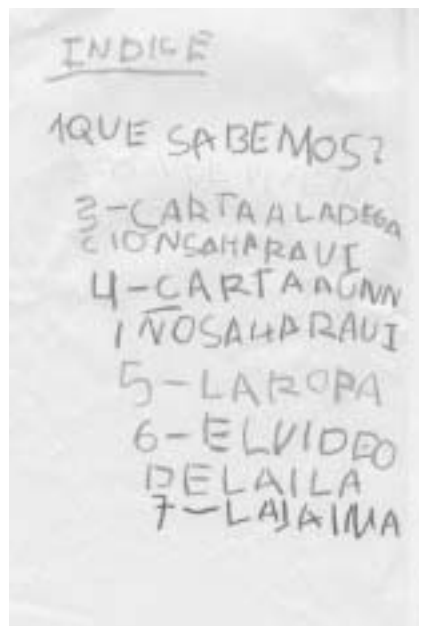 INDICE
1QUE SABEMOS?
3-CARTA A LADEGA
CIONSAHARAUI
4-CARTA AUNN
IÑOSAHARAUI
5-LAROPA
6-ELVIDEO
DELAILA
7-LAJAIMA